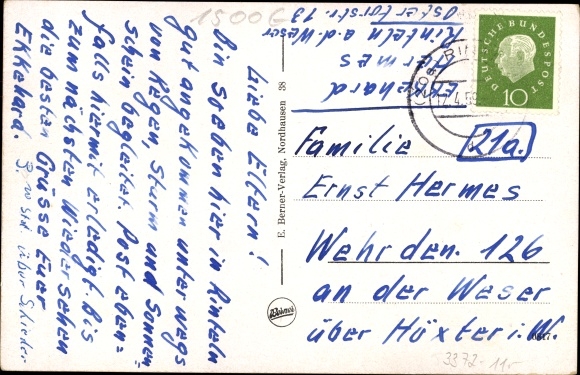 Liebe Eltern!
Bin soeben hier in Rinteln
gut angekommen unterwegs
von Regen, Sturm und Sonnen-
schein begleitet. Post eben=
falls hiermit erledigt. Bis
zum nächsten Wiedersehen
die besten Grüsse Euer
Ekkehard
über Schieder.
E. Berner-Verlag, Nordhausen 38
Berner
Ekkehard
Hermes
Rinteln a.d. Weser
Osterforstr. 13
DEUTSCHE BUNDESPOST
10
RIN
17.4.59
Familie 21a.
Ernst Hermes
Wehrden. 126
an der Weser
über Höxter i.W.
1500
3372-11-